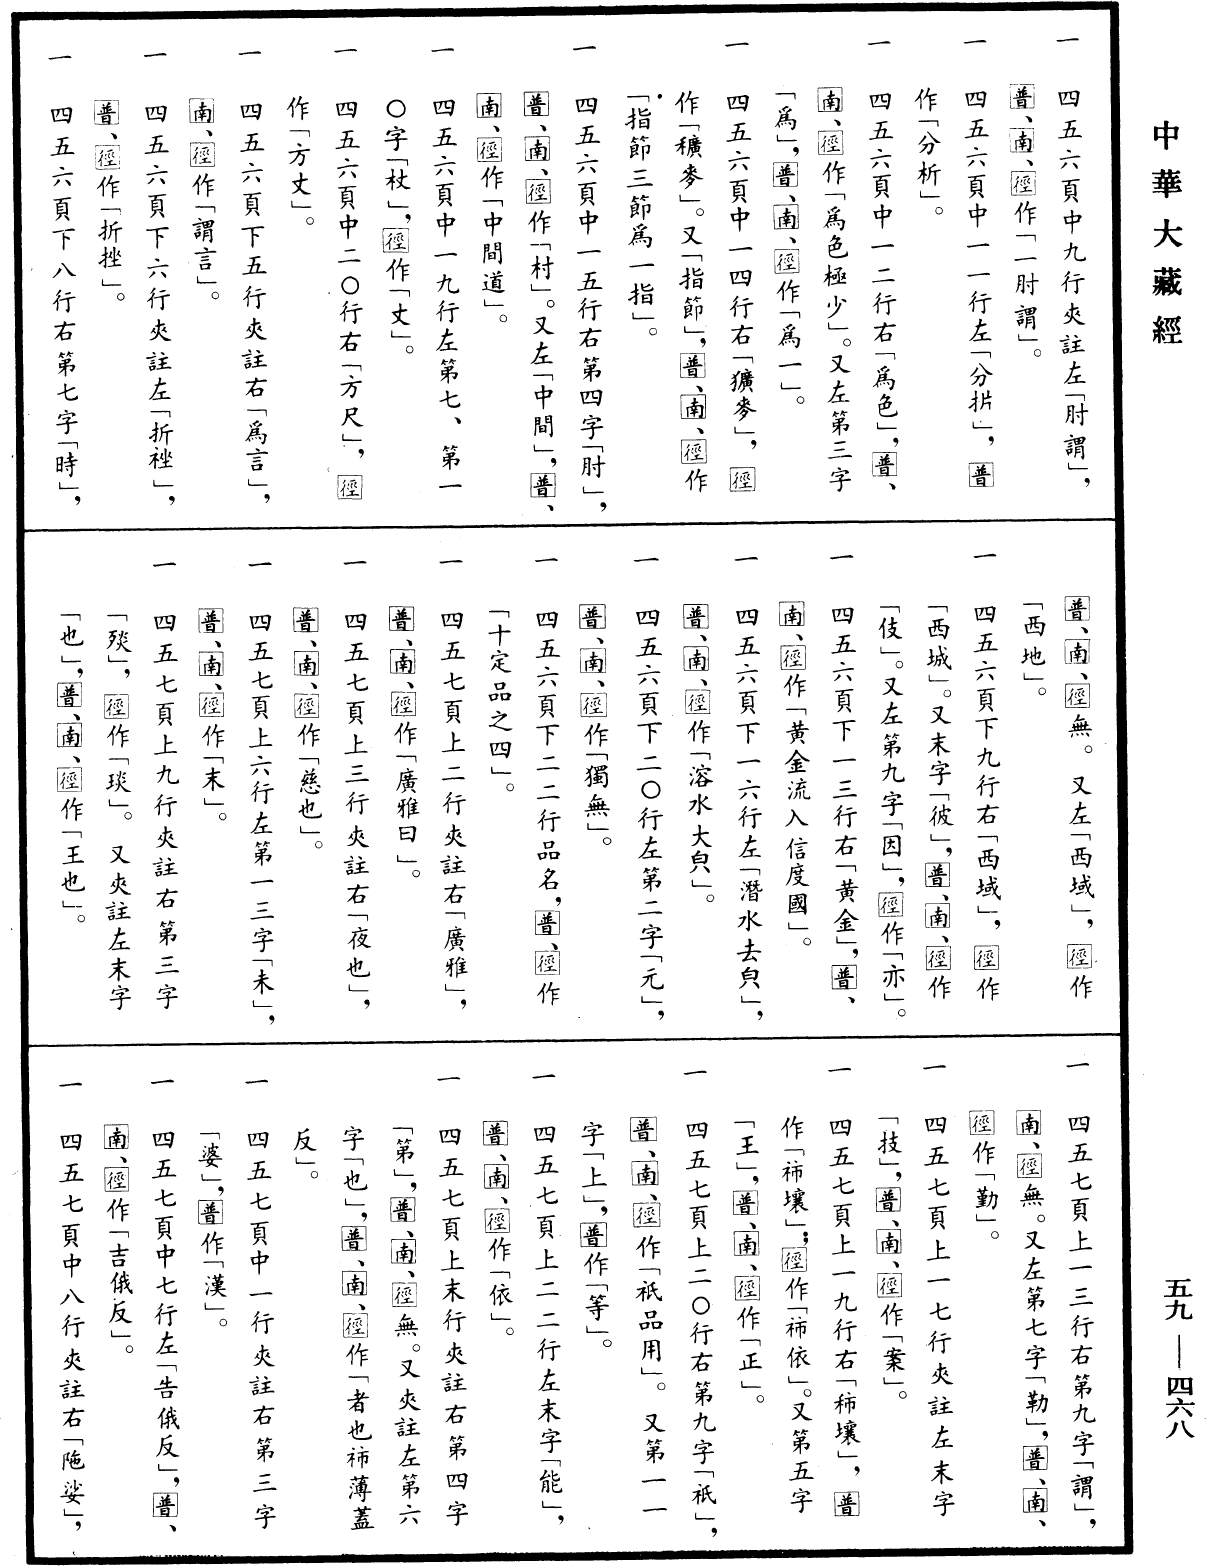 中華大藏經
一　四五六頁中九行夾註左「肘謂」，
普、南、徑作「一肘謂」。
一　四五六頁中一一行左「分㸤」，普
作「分析」。
一　四五六頁中一二行右「爲色」，普、
南、徑作「爲色極少」。又左第三字
「爲」，普、南、徑作「爲一」。
一　四五六頁中一四行右「獷麥」，徑
作「穬麥」。又「指節」，普、南、徑作
「指節三節爲一指」。
一　四五六頁中一五行右第四字「肘」，
普、南、徑作「村」。又左「中間」，普、
南、徑作「中間道」。
一　四五六頁中一九行左第七、第一
〇字「杖」，徑作「丈」。
一　四五六頁中二〇行右「方尺」，徑
作「方丈」。
一　四五六頁下五行夾註右「爲言」，
南、徑作「謂言」。
一　四五六頁下六行夾註左「折䂳」，
普、徑作「折挫」。
一　四五六頁下八行右第七字「時」，
普、南、徑無。又左「西域」，徑作
「西地」。
一　四五六頁下九行右「西域」，徑作
「西城」。又末字「彼」，普、南、徑作
「伎」。又左第九字「因」，徑作「亦」。
一　四五六頁下一三行右「黃金」，普、
南、徑作「黃金流入信度國」。
一　四五六頁下一六行左「潛水去㒵」，
普、南、徑作「溶水大㒵」。
一　四五六頁下二〇行左第二字「元」，
普、南、徑作「獨無」。
一　四五六頁下二二行品名，普、徑作
「十定品之四」。
一　四五七頁上二行夾註右「廣雅」，
普、南、徑作「廣雅曰」。
一　四五七頁上三行夾註右「夜也」，
普、南、徑作「慈也」。
一　四五七頁上六行左第一三字「未」，
普、南、徑作「末」。
一　四五七頁上九行夾註右第三字
「㱮」，徑作「琰」。又夾註左末字
「也」，普、南、徑作「王也」。
一　四五七頁上一三行右第九字「謂」，
南、徑無。又左第七字「勒」，普、南、
徑作「勤」。
一　四五七頁上一七行夾註左末字
「技」，普、南、徑作「案」。
一　四五七頁上一九行右「秭壤」，普
作「祢壤」；徑作「祢依」。又第五字
「王」，普、南、徑作「正」。
一　四五七頁上二〇行右第九字「衹」，
普、南、徑作「衹品用」。又第一一
字「上」，普作「等」。
一　四五七頁上二二行左末字「能」，
普、南、徑作「依」。
一　四五七頁上末行夾註右第四字
「第」，普、南、徑無。又夾註左第六
字「也」，普、南、徑作「者也祢薄蓋
反」。
一　四五七頁中一行夾註右第三字
「婆」，普作「漢」。
一　四五七頁中七行左「告俄反」，普、
南、徑作「吉俄反」。
一　四五七頁中八行夾註右「陁娑」，
五九—四六八